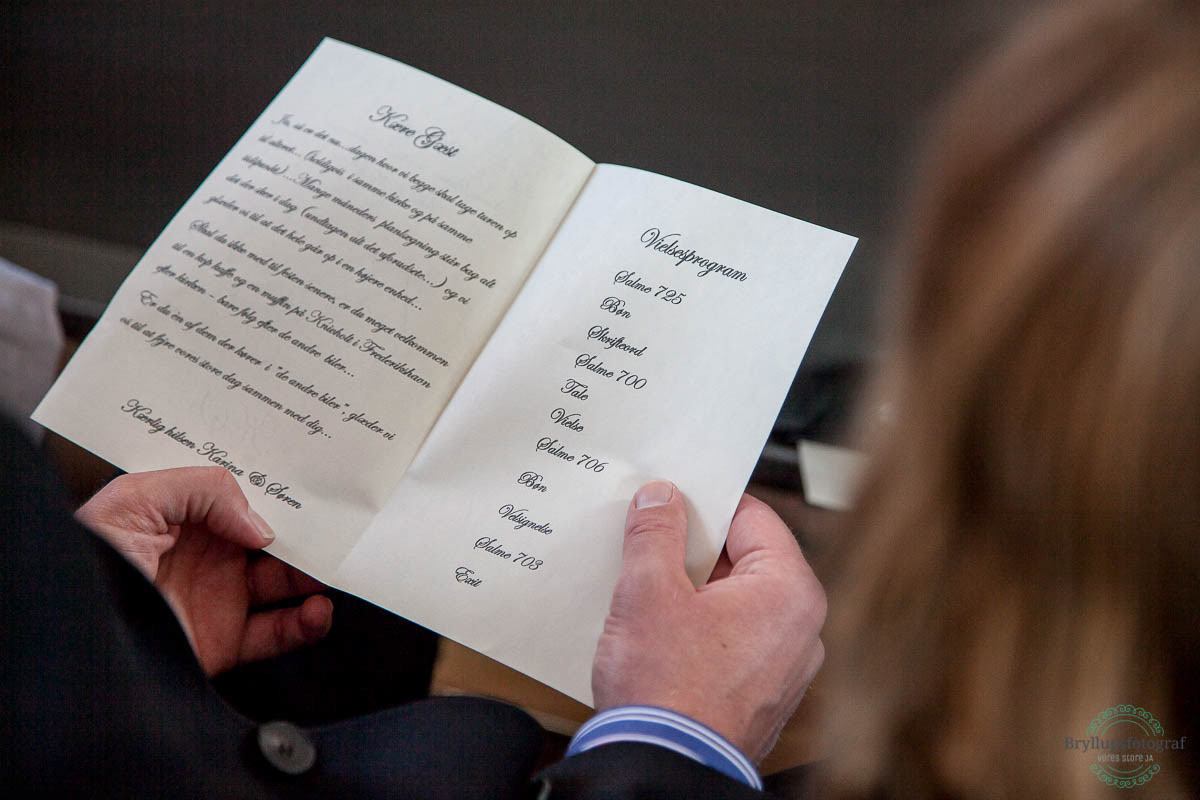 Kære Gæst
Ja, så er det nu...dagen hvor vi begge skal tage turen op
til alteret... (heldigvis i samme kirke og på samme
tidspunkt)...Mange måneders planlægning står bag alt
det der sker i dag (undtagen alt det uforudsete...) og vi
glæder os til at det hele går op i en højere enhed...
Skal du ikke med til festen senere, er du meget velkommen
til en kop kaffe og en muffin på Knivholt i Frederikshavn
efter kirken - bare følg efter de andre biler...
Er du èn af dem der hører i "de andre biler", glæder vi
os til at fejre vores store dag sammen med dig...
Kærlig hilsen Karina & Søren
Vielsesprogram
Salme 725
Bøn
Skrifteord
Salme 700
Tale
Vielse
Salme 706
Bøn
Velsignelse
Salme 703
Exit
Bryllupsfotograf
VORES STORE JA